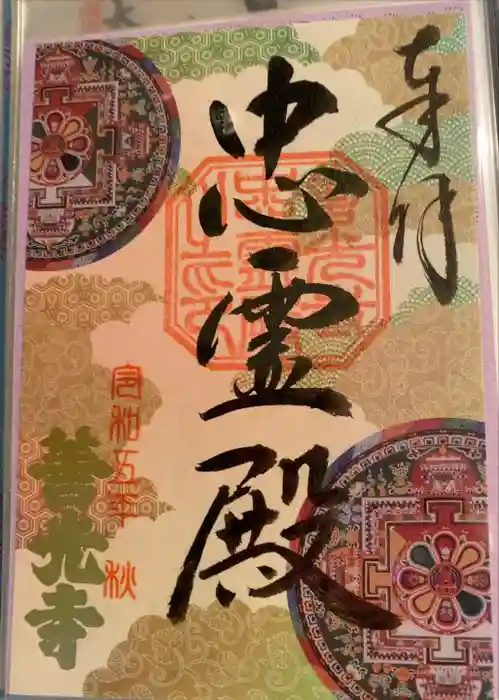 奉拝
忠霊殿
令和五年 秋
善光寺